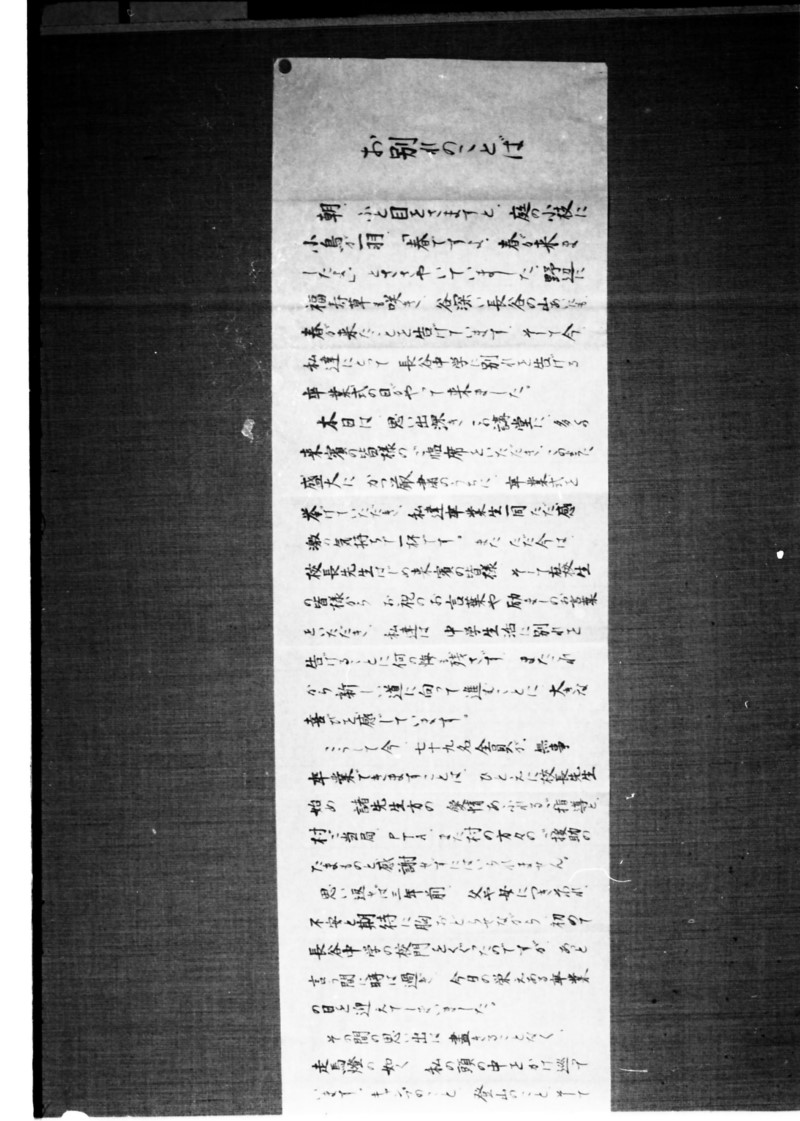 お別れのことば
朝 ふと目をさますと、庭の小枝に
小鳥が一羽「春ですよ、春が来ま
したよ」とささやいていました。野辺に
福寿草も咲き、谷深い長谷の山あいにも
春が来たことを告げています。そして今
私達にとって 長谷中学に別れを告げる
卒業式の日がやって来ました。
本日は 思い出深き この講堂に、多くの
来賓の皆様のご臨席をいただき、このように
盛大に かつ厳粛のうちに 卒業式を
挙げていただき、私達卒業生一同ただ感
激の気持ちで一杯です。また ただ今は
校長先生はじめ来賓の皆様 そして在校生
の皆様から お祝のお言葉や励ましのお言葉
をいただき、私達は 中学生活に別れを
告げることに何の悔も残さず またこれ
から新しい道に向って進むことに 大きな
喜びを感じています。
こうして今 七十九名全員が 無事
卒業できますことは ひとえに校長先生
始め 諸先生方の 愛情あふれるご指導と
村ご当局 PTA また村の方々のご援助の
たまものと感謝せずにはいられません。
思い返せば三年前 父や母につきそわれ
不安と期待に胸おどらせながら 初めて
長谷中学の校門をくぐったのですが あっと
言う間に時は過ぎ 今日の栄えある卒業
の日を迎えてしまいました。
その間の思い出は 尽きることなく
走馬燈の如く 私の頭の中をかけ巡って
います。キャンプのこと 登山のこと そして